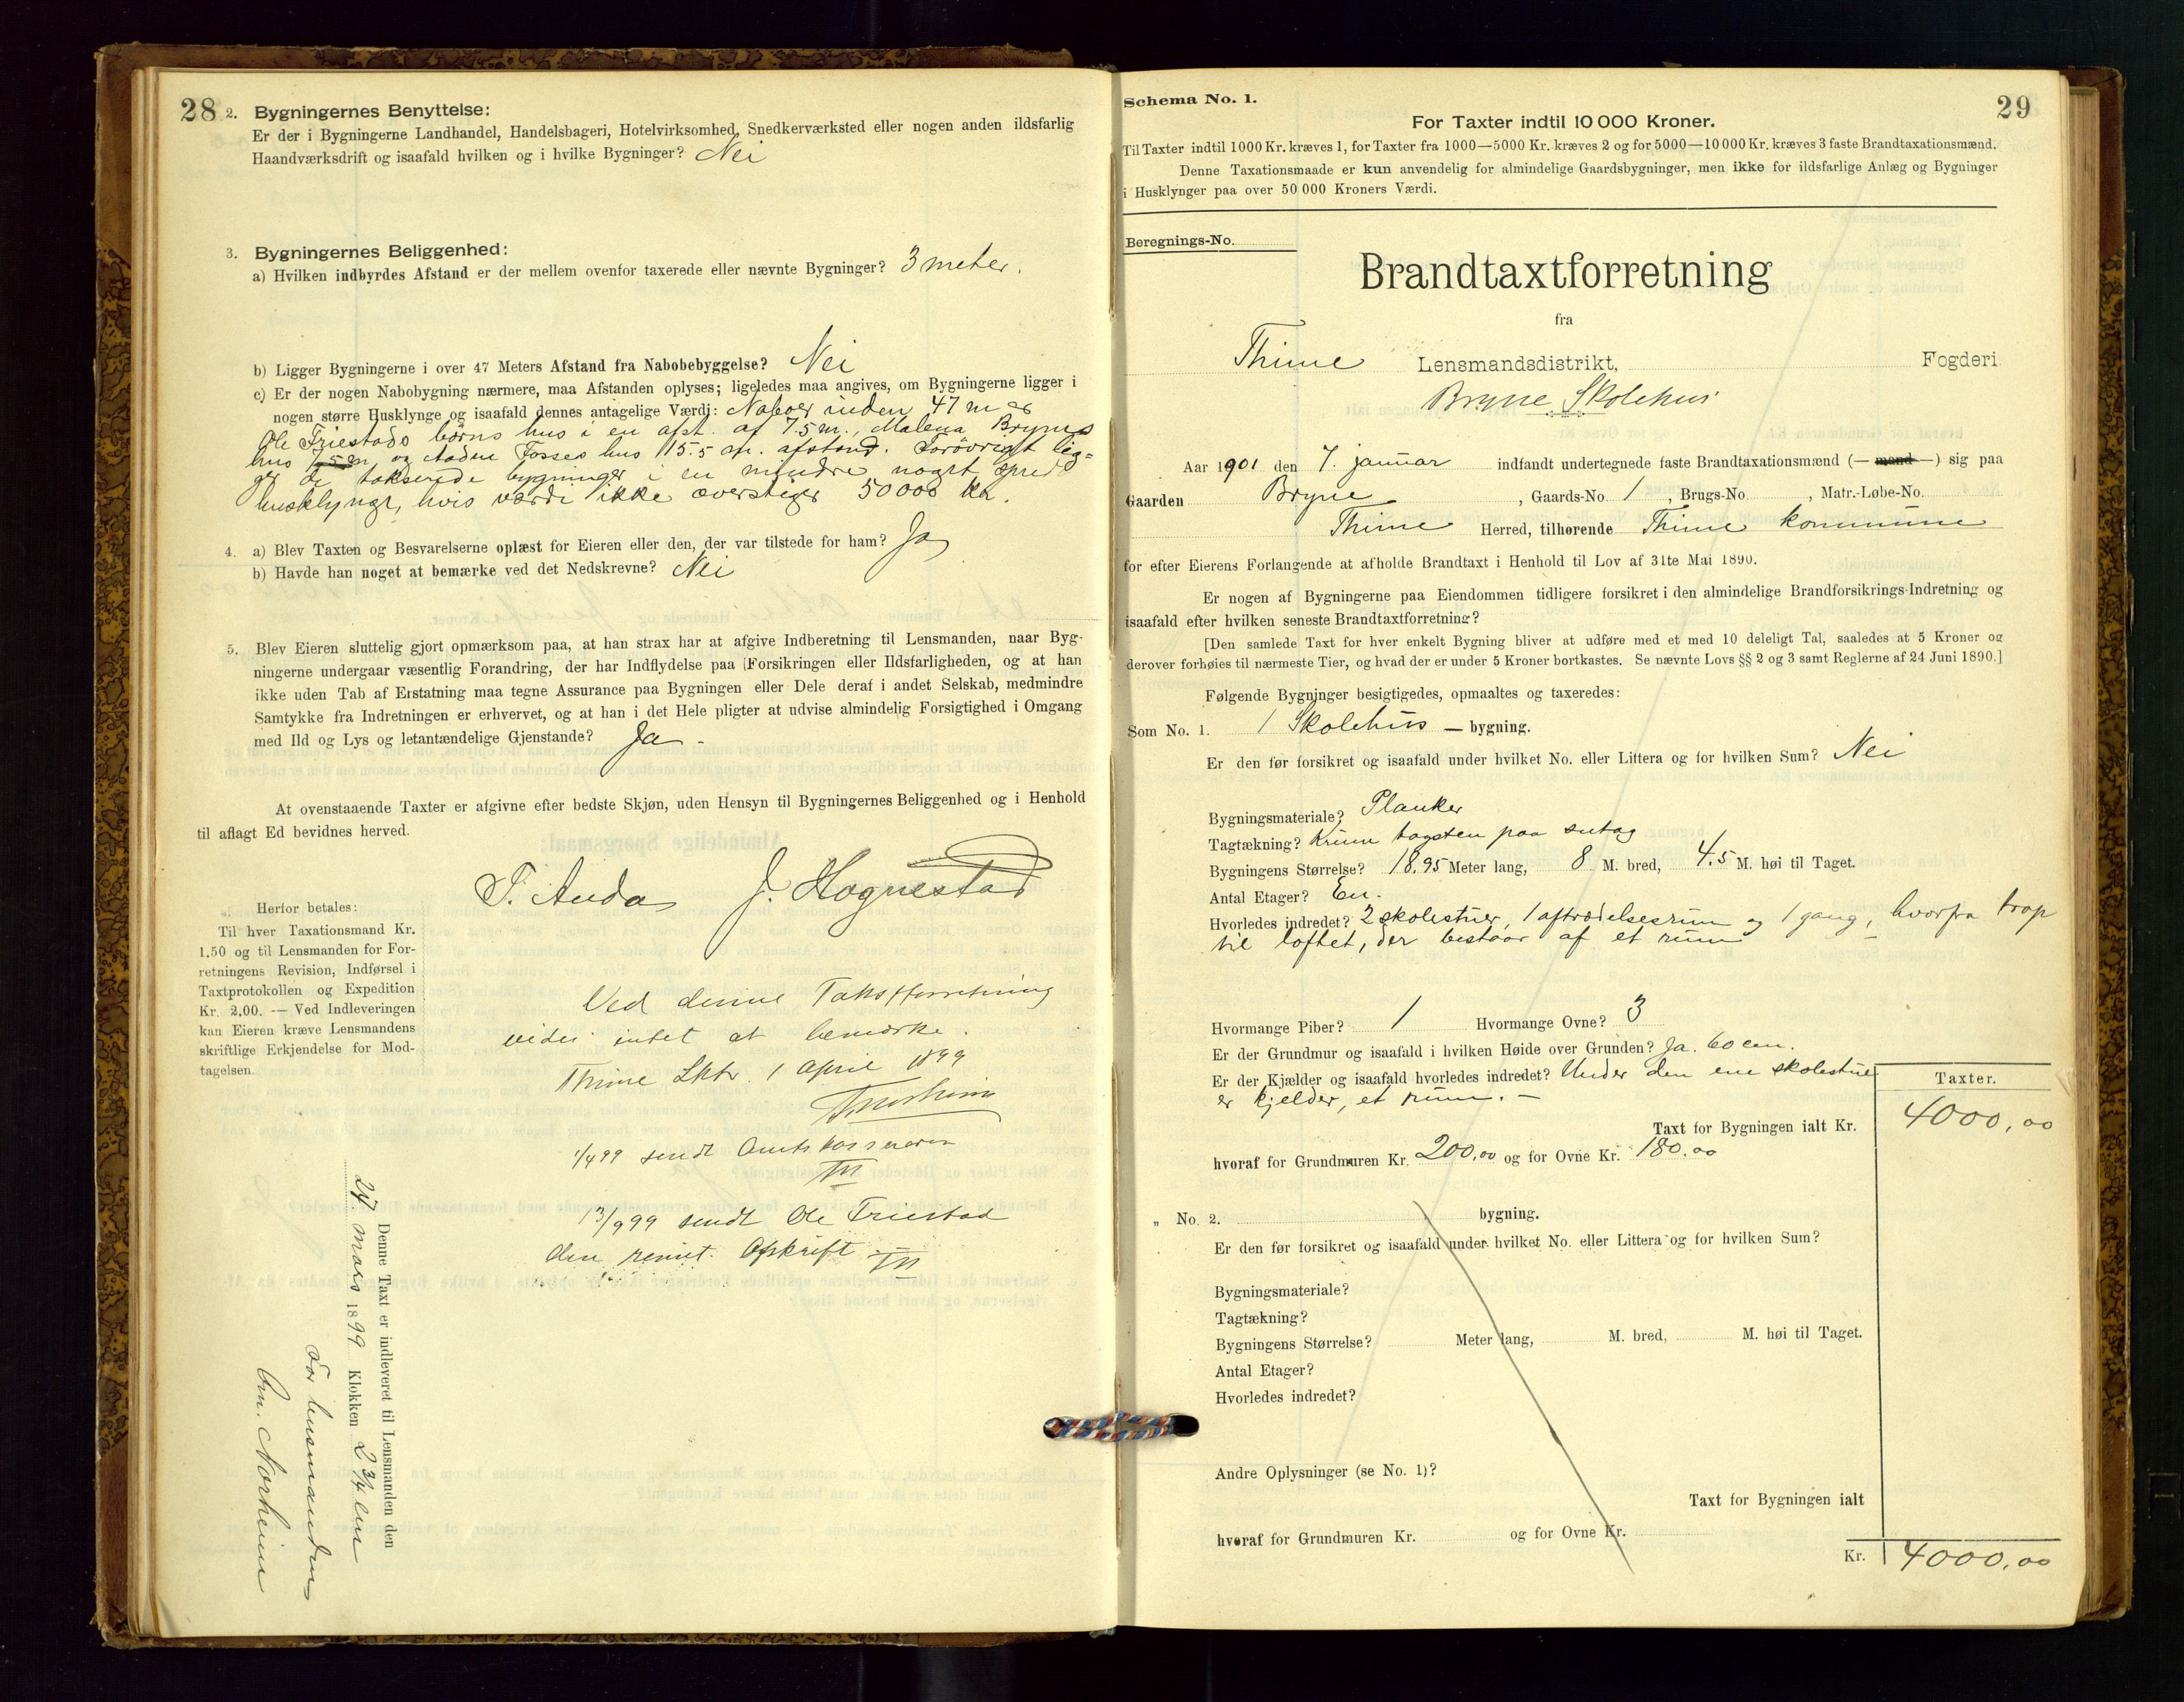 28
2. Bygningernes Benyttelse:
Er der i Bygningerne Landhandel, Handelsbageri, Hotelvirksomhed, Snedkerværksted eller nogen anden ildsfarlig
Haandværksdrift og isaafald hvilken og i hvilke Bygninger? Nei
3. Bygningernes Beliggenhed:
a) Hvilken indbyrdes Afstand er der mellem ovenfor taxerede eller nævnte Bygninger? 3 meter.
b) Ligger Bygningerne i over 47 Meters Afstand fra Nabobebyggelse? Nei
c) Er der nogen Nabobygning nærmere, maa Afstanden oplyses; ligeledes maa angives, om Bygningerne ligger i
nogen større Husklynge og isaafald dennes antagelige Værdi: Naboer inden 47 m er
Ole Friestads børns hus i en afst. af 7.5 m., Malena Brynes
hus 7.5 m og Aadne Fosses hus 15.5 m. afstand. Forøvrigt lig=
ger de takserede bygninger i en mindre noget spredt
husklynge, hvis værdi ikke overstiger 50 000 kr.
4. a) Blev Taxten og Besvarelserne oplæst for Eieren eller den, der var tilstede for ham? Ja
b) Havde han noget at bemærke ved det Nedskrevne? Nei
5. Blev Eieren sluttelig gjort opmærksom paa, at han strax har at afgive Indberetning til Lensmanden, naar Byg-
ningerne undergaar væsentlig Forandring, der har Indflydelse paa Forsikringen eller Ildsfarligheden, og at han
ikke uden Tab af Erstatning maa tegne Assurance paa Bygningen eller Dele deraf i andet Selskab, medmindre
Samtykke fra Indretningen er erhvervet, og at han i det Hele pligter at udvise almindelig Forsigtighed i Omgang
med Ild og Lys og letantændelige Gjenstande? Ja.
At ovenstaaende Taxter er afgivne efter bedste Skjøn, uden Hensyn til Bygningernes Beliggenhed og i Henhold
til aflagt Ed bevidnes herved.
T. Anda J. Hognestad
Herfor betales:
Til hver Taxationsmand Kr.
1.50 og til Lensmanden for For-
retningens Revision, Indførsel i
Taxtprotokollen og Expedition
Kr. 2.00. — Ved Indleveringen
kan Eieren kræve Lensmandens
skriftlige Erkjendelse for Mod-
tagelsen.
Ved denne Takstforretning
vides intet at bemærke.
Thime Lktr. 1 April 1899
1/4 99 sendt Amtskassereren
13/9 99 sendt Ole Friestad
den Afskrift
Denne Taxt er indleveret til Lensmanden den
27 mars 1899 Klokken 2 3/4 em
For lensmanden
Om. Norheim
Schema No. 1.
29
For Taxter indtil 10 000 Kroner.
Til Taxter indtil 1000 Kr. kræves 1, for Taxter fra 1000—5000 Kr. kræves 2 og for 5000—10 000 Kr. kræves 3 faste Brandtaxationsmænd.
Denne Taxationsmaade er kun anvendelig for almindelige Gaardsbygninger, men ikke for ildsfarlige Anlæg og Bygninger
i Husklynger paa over 50 000 Kroners Værdi.
Beregnings-No.
Brandtaxtforretning
fra
Thime Lensmandsdistrikt, Fogderi
Bryne Skolehus
Aar 1901 den 7. januar indfandt undertegnede faste Brandtaxationsmænd (— mand —) sig paa
Gaarden Bryne, Gaards-No. 1, Brugs-No. , Matr.-Løbe-No.
Thime Herred, tilhørende Thime kommune
for efter Eierens Forlangende at afholde Brandtaxt i Henhold til Lov af 31te Mai 1890.
Er nogen af Bygningerne paa Eiendommen tidligere forsikret i den almindelige Brandforsikrings-Indretning og
isaafald efter hvilken seneste Brandtaxtforretning?
[Den samlede Taxt for hver enkelt Bygning bliver at udføre med et med 10 deleligt Tal, saaledes at 5 Kroner og
derover forhøies til nærmeste Tier, og hvad der er under 5 Kroner bortkastes. Se nævnte Lovs §§ 2 og 3 samt Reglerne af 24 Juni 1890.]
Følgende Bygninger besigtigedes, opmaaltes og taxeredes:
Som No. 1. 1 Skolehus — bygning.
Er den før forsikret og isaafald under hvilket No. eller Littera og for hvilken Sum? Nei
Bygningsmateriale? Planker
Tagtækning? Krum tagsten paa sutag
Bygningens Størrelse? 18.95 Meter lang, 8 M. bred, 4.5 M. høi til Taget.
Antal Etager? En.
Hvorledes indredet? 2 skolestuer, 1 aftrædelsesrum og 1 gang, hvorfra trap
til loftet, der bestaar af et rum
Hvormange Piber? 1 Hvormange Ovne? 3
Er der Grundmur og isaafald i hvilken Høide over Grunden? Ja. 60 cm.
Er der Kjælder og isaafald hvorledes indredet? Under den ene skolestue
er kjelder, et rum. —
Taxter.
Taxt for Bygningen ialt Kr. 4000,00
hvoraf for Grundmuren Kr. 200,00 og for Ovne Kr. 180.00
„ No. 2. bygning.
Er den før forsikret og isaafald under hvilket No. eller Littera og for hvilken Sum?
Bygningsmateriale?
Tagtækning?
Bygningens Størrelse? Meter lang, M. bred, M. høi til Taget.
Antal Etager?
Hvorledes indredet?
Andre Oplysninger (se No. 1)?
Taxt for Bygningen ialt
hvoraf for Grundmuren Kr. og for Ovne Kr.
Kr. 4000,00